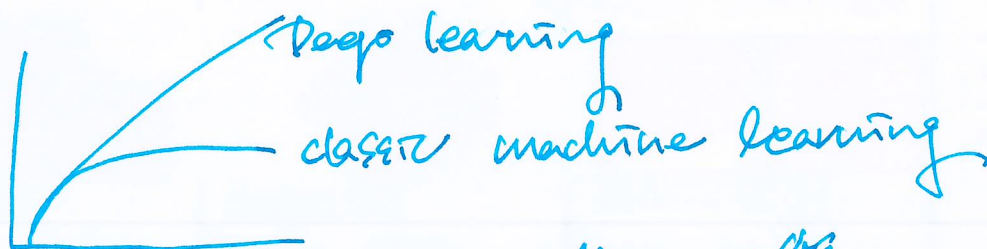 Deep learning
classic machine learning